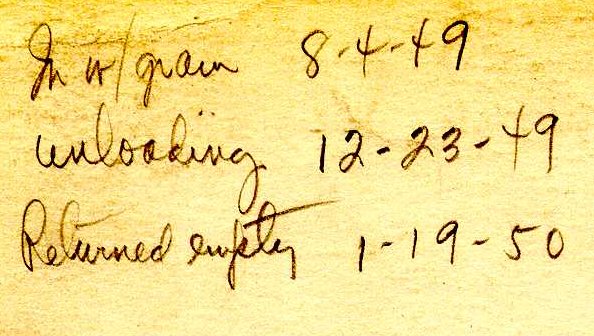 In w/ grain 8-4-49
unloading 12-23-49
Returned empty 1-19-50